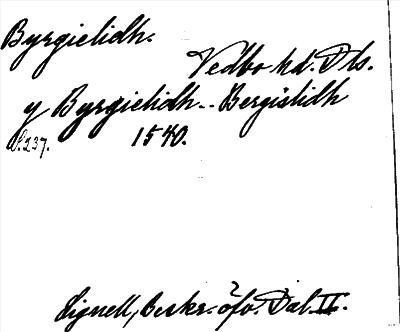 Byrgielidh.
Vedbo hd. Dls.
y Byrgielidh - - Bergislidh
S. 237. 1540.
Lignell, Beskr. öfv. Dal. II.